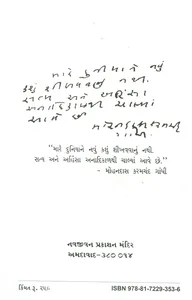 મારે દુનીયાને નવું
કશું શીખવવાનું નથી.
સત્ય અને અહિંસા
અનાદિકાળથી ચાલ્યાં
આવે છે
મોહનદાસ કરમચંદ
ગાંધી
"મારે દુનિયાને નવું કશું શીખવવાનું નથી.
સત્ય અને અહિંસા અનાદિકાળથી ચાલ્યાં આવે છે."
- મોહનદાસ કરમચંદ ગાંધી
નવજીવન પ્રકાશન મંદિર
અમદાવાદ-૩૮૦ ૦૧૪
કિંમત રૂ.
ISBN 978-81-7229-353-6